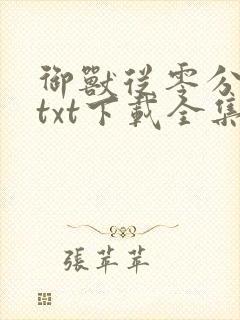 御獸從零分
txt下載全集
張苹苹